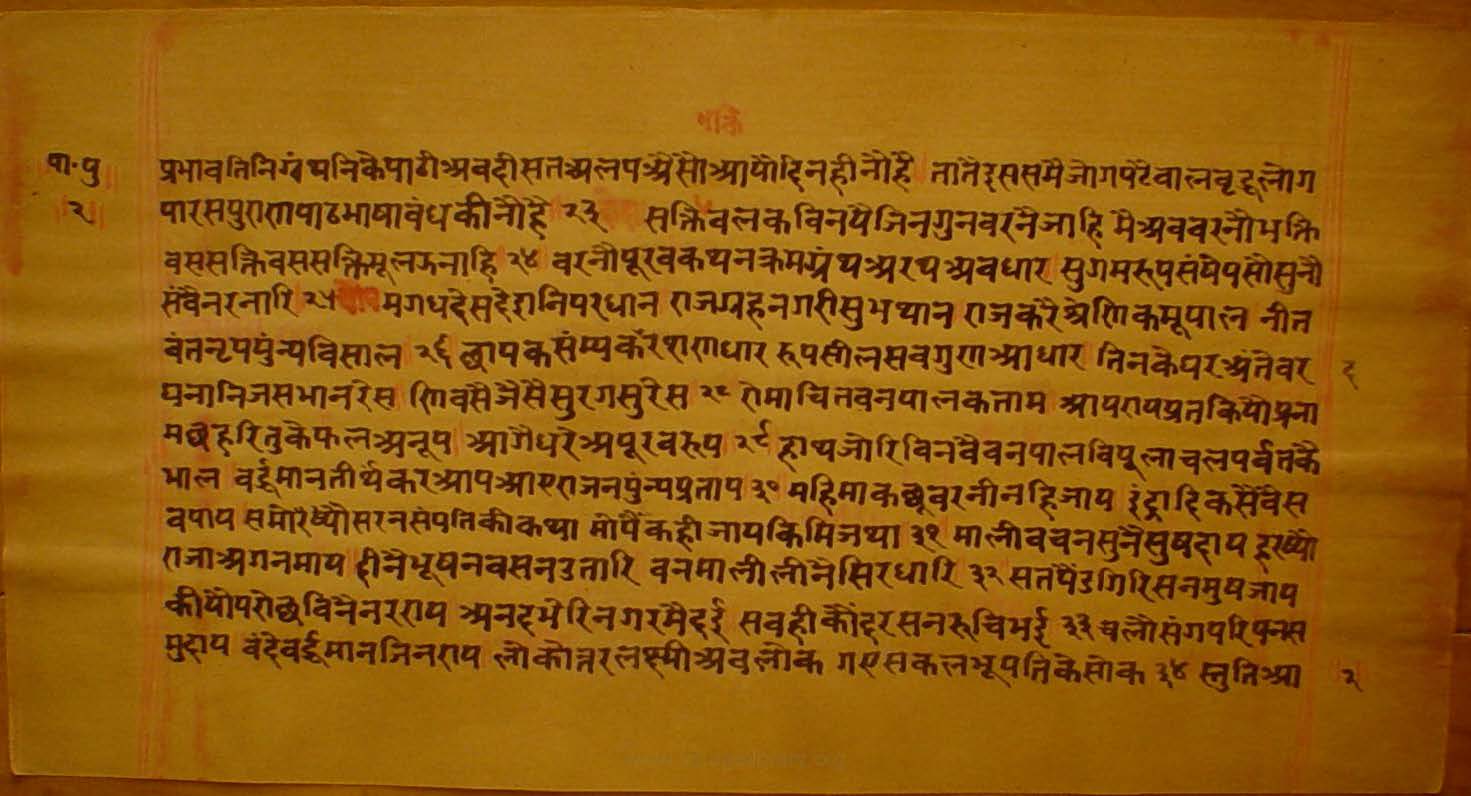 पा.पु
२
प्रभावतिनिगंरंथनिकेपाठीअवहीसतअलपअैसोआयौदिनहीनौहै तातैइससमैजोगपढैवालबृद्धलोग
पारसपुराणपाठभाषावंधकीनौहै २३ सक्तिवलेकविनपैजिनगुनवरनैजाहि मैअववरनौभक्ति
वससक्तिवससक्तिमूलऊनाहि २४ वरनौपूरवकथनक्रमग्रंथअरथअवधार सुगमरूपसंषेपसौसुनौ
सवैनरनारि २५ मगधदेसदेसनिपरधान राजग्रहनगरीसुभथान राजकरैश्रेणिकभूपाल नीत
वंतनृपपुंन्यविसाल २६ छायकसंम्यकदरशणधार रूपसीलसवगुणआधार तिनकेघरअंतेवर
घनानिजसभानरेस णिवसैजैसैसुरगसुरेस २८ रोमाचितवनपालकताम आयरायप्रतकियौप्रना
मछहरितुकेफलअनूप आगैधरेअपूरवरूप २९ हाथजोरिविनवैवनपालविपुलाचलपर्वतकै
भाल वर्द्धमानतीर्थकरआपआएराजनपुंन्यप्रताप ३० महिमाकछूवरनीनहिजाय इंद्रादिकसेवैस
वपाय समोरध्यौसरनसंपतिकीकथा मोपैकहीजायकिमिजथा ३१ मालीवचनसुनेसुषदाय हरष्यो
राजाअगनमाय दीनैभूषनवसनउतारि वनमालीलीनैसिरधारि ३२ सतपैडगिरिसनमुषजाय
कीयौपरोछविनैनरराय अनदभेरिनगरमैदई सवहीकौंदरसनरुचिभई ३३ चलौसंगपरियनस
मुदाय वंदेवर्द्धमानजिनराय लोकोत्तरलक्ष्मीअवलोक गएसकलभूपतिकेसोक ३४ स्तुतिआ
२